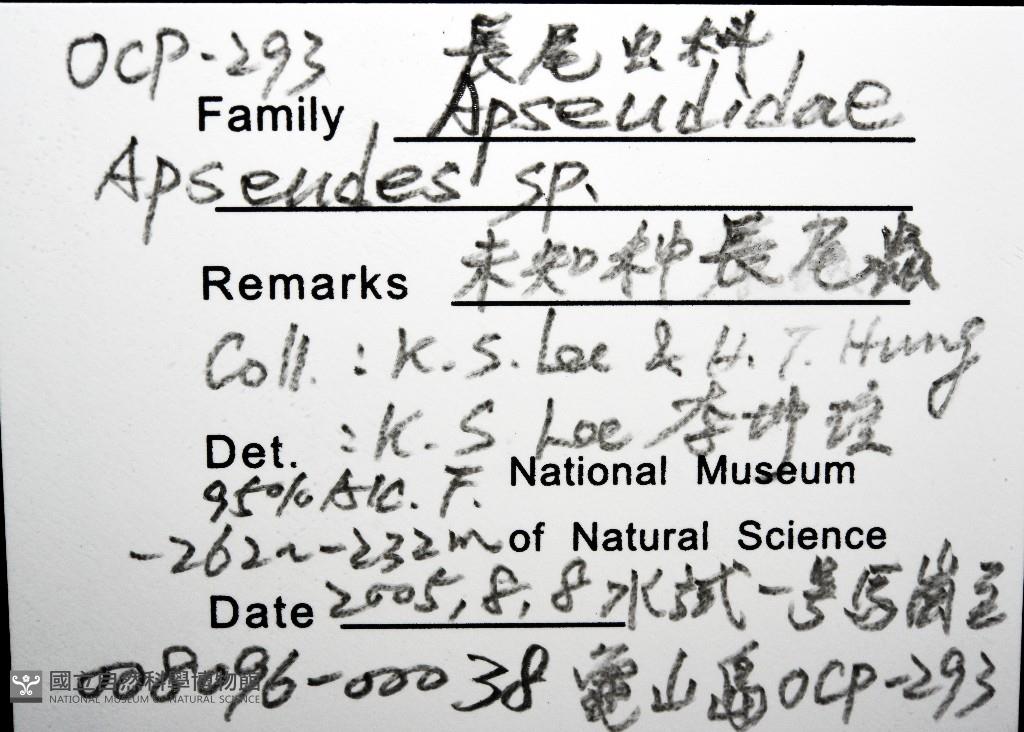 OCP-293 長尾虫科
Family Apseudidae
Apseudes sp.
Remarks 未知种長尾蟲
Coll. : K. S. Lee & H. T. Hung
Det. : K. S Lee 李坤瑄
95% Alc. F. National Museum
-262~-232m of Natural Science
Date 2005, 8, 8 水試一号馬崗至
008096-00038 龜山島OCP-293
國立自然科學博物館
NATIONAL MUSEUM OF NATURAL SCIENCE